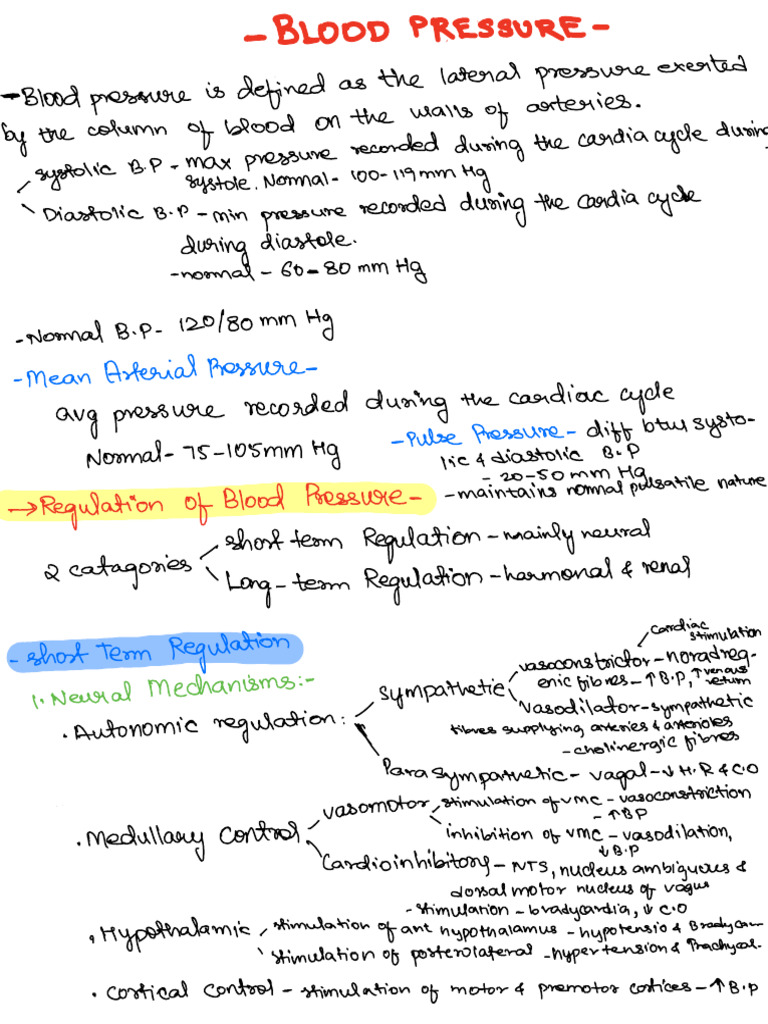 - BLOOD PRESSURE -
- Blood pressure is defined as the lateral pressure exerted
by the column of blood on the walls of arteries.
systolic B.P - max pressure recorded during the cardia cycle during
systole. Normal - 100-119 mm Hg
Diastolic B.P - min pressure recorded during the cardia cycle
during diastole.
- normal - 60-80 mm Hg
- Normal B.P - 120/80 mm Hg
- Mean Arterial Pressure -
avg pressure recorded during the cardiac cycle
Normal - 75-105 mm Hg
- Pulse Pressure - diff btw systo-
lic & diastolic B.P
- 20-50 mm Hg
- maintains normal pulsatile nature
→ Regulation of Blood Pressure -
2 catagories
short term Regulation - mainly neural
Long - term Regulation - harmonal & renal
- Short Term Regulation
1. Neural Mechanisms:-
. Autonomic regulation:
sympathetic
cardiac
stimulation
vasoconstrictor - noradreq-
enic fibres - ↑ B.P, ↑ venous
return
vasodilator - sympathetic
fibres supplying arteries & arterioles
- cholinergic fibres
Para sympathetic - vagal - ↓ H.R & C.O
. Medullary control
vasomotor
stimulation of VMC - vasoconstriction
- ↑ BP
inhibition of VMC - vasodilation,
↓ B.P
Cardioinhibitory - NTS, nucleus ambiguous &
dorsal motor nucleus of vagus
- stimulation - bradycardia, ↓ C.O
. Hypothalamic
stimulation of ant hypothalamus - hypotensio & Bradycar
stimulation of posterolateral - hypertension & Trachycar.
. Cortical control - stimulation of motor & premotor cortices - ↑ B.P